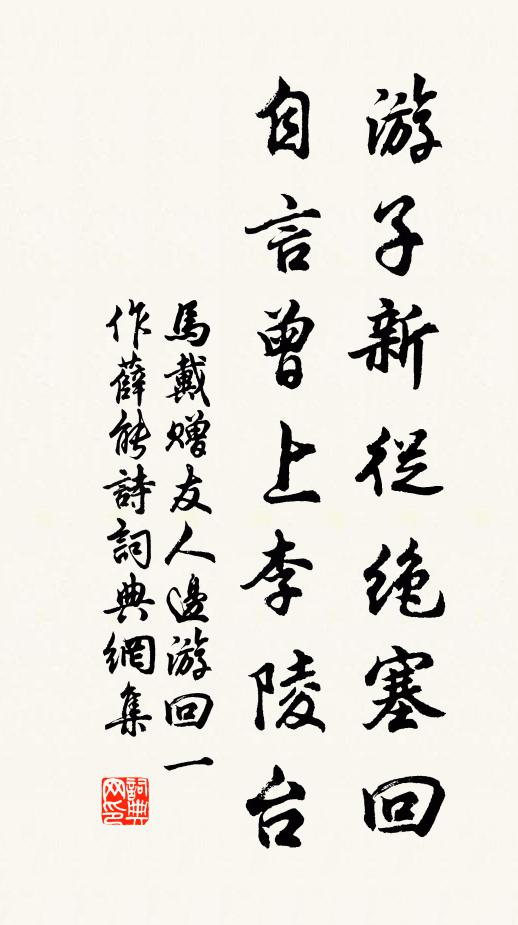 游子新從绝塞回
自言曾上李陵台
馬戴赠友人邊游回一
作薛能詩詞典網集
詞典
网印